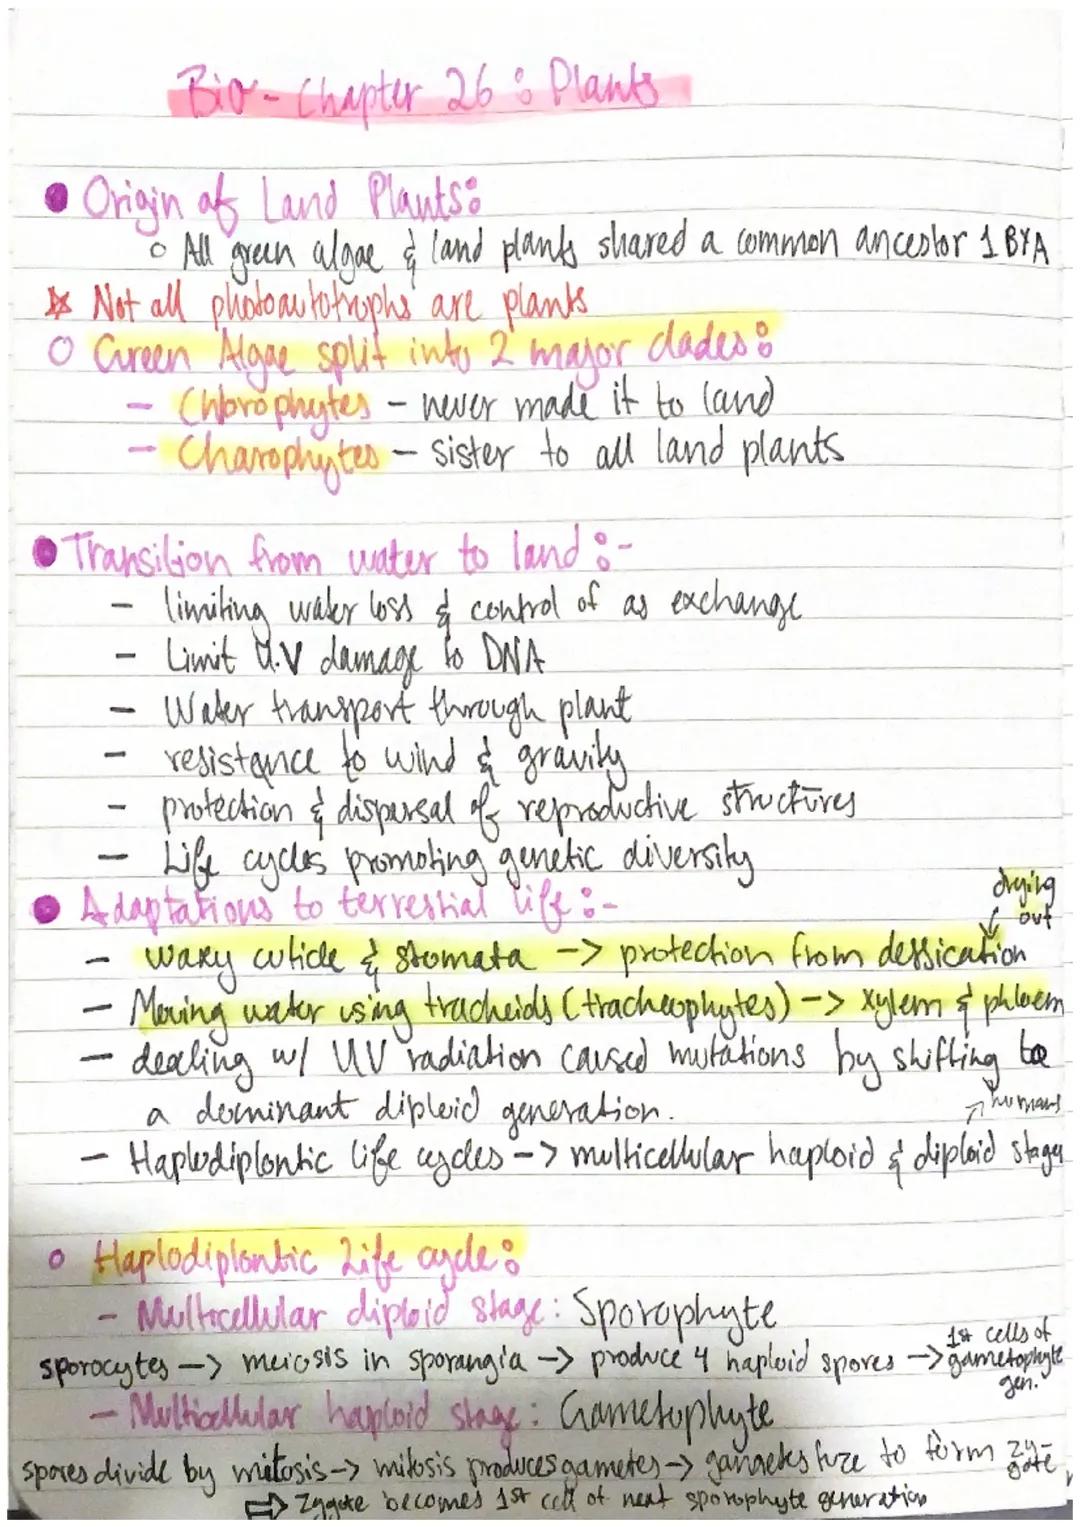 Bio - Chapter 26 : Plants
Origin of Land Plants:
All green algae & land plants shared a common ancestor 1 BYA
Not all photoautotrophs are plants
Green Algae split into 2 major clades:
- Chlorophytes - never made it to land
- Charophytes - sister to all land plants
Transition from water to land :-
- limiting water loss & control of as exchange
- Limit U.V damage to DNA
- Water transport through plant
- resistance to wind & gravity
- protection & dispersal of reproductive structures
- Life cycles promoting genetic diversity
drying out
Adaptations to terrestrial life :-
- waxy cuticle & stomata -> protection from dessication
- Moving water using tracheids (tracheophytes) -> xylem & phloem
- dealing w/ UV radiation caused mutations by shifting to
a dominant diploid generation.
humans
- Haplodiplontic life cycles -> multicellular haploid & diploid stages
Haplodiplontic Life cycle:
- Multicellular diploid stage: Sporophyte
sporocytes -> meiosis in sporangia -> produce 4 haploid spores -> 1st cells of gametophyte gen.
- Multicellular haploid stage: Gametophyte
spores divide by mitosis -> mitosis produces gametes -> gametes fuze to form zygote
⇒ Zygote becomes 1st cell of next sporophyte generation